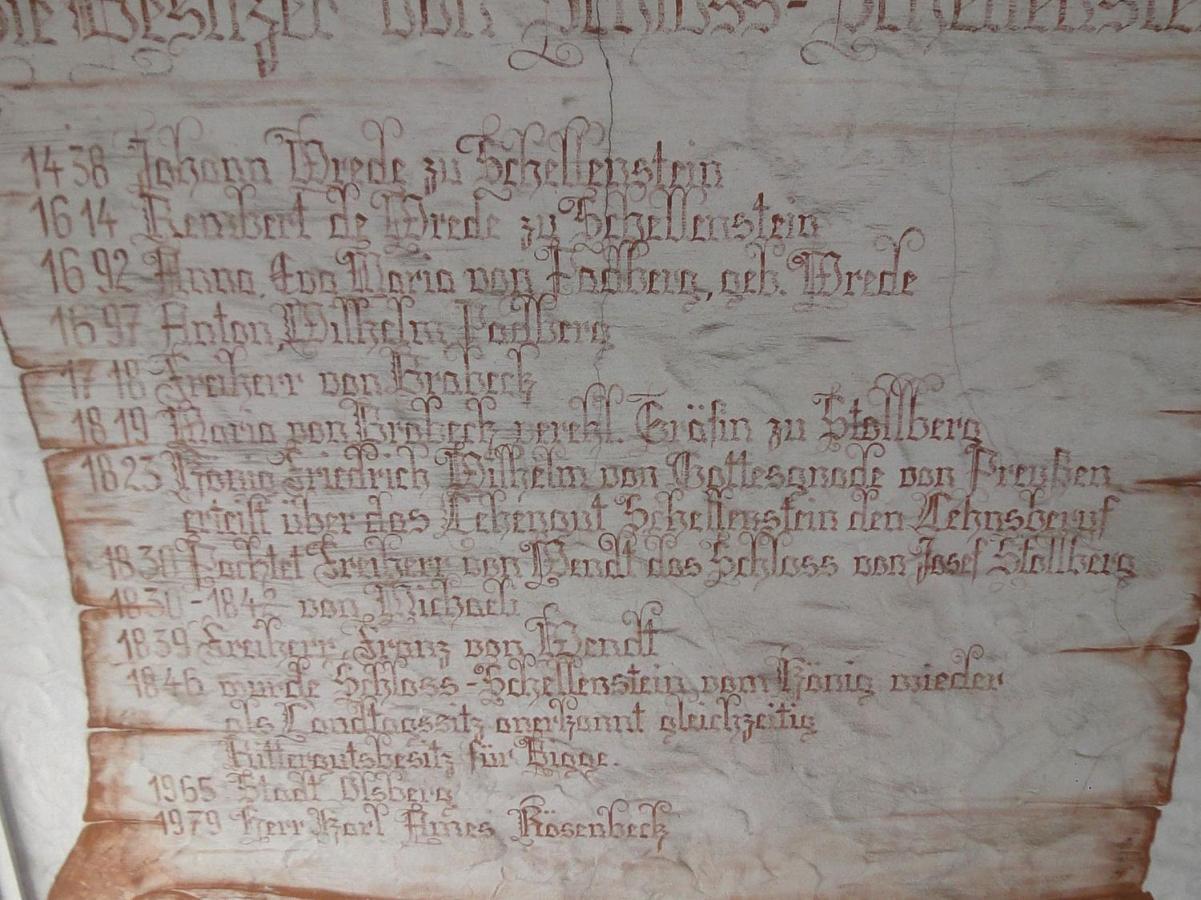 die Besitzer von Schloss-Schellenste
1438 Johann Wrede zu Schellenstein
1614 Rembert de Wrede zu Schellenstein
1692 Anna, Eva Maria von Padberg, geb. Wrede
1697 Anton, Wilhelm Padberg
1718 Freiherr von Brabeck
1819 Maria von Brabeck verehl. Gräfin zu Stollberg
1823 König Friedrich Wilhelm von Gottesgnade von Preußen
erteilt über das Lehengut Schellenstein den Lehnsberuf
1830 Pachtet Freiherr von Wendt das Schloss von Josef Stollberg
1830-1842 von Michaeli
1839 Freiherr, Franz von Wendt
1846 wurde Schloss-Schellenstein vom König wieder
als Landtagssitz anerkannt gleichzeitig
Rittergutsbesitz für Bigge.
1965 Stadt Olsberg
1979 Herr Karl Rösenbeck